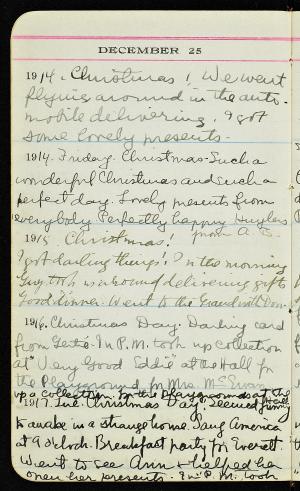 DECEMBER 25
1914. Christmas! We went
flying around in the auto-
mobile delivering. I got
some lovely presents.
1914. Friday. Christmas. Such a
wonderful Christmas and such a
perfect day. Lovely presents from
everybody Perfectly happy Huylers
from A. B.
1915. Christmas!
I got darling things! In the morning
Guy took us around delivering gifts
Good dinner. Went to the Grand with Don
1916. Christmas Day. Darling card
from Gertie. In P.M. took up collection
at "Very Good Eddie" at the Hall for
the Playground for Mrs. McEwan
up a collection for the playgrounds at the
1917. Tue. Christmas Day. Seemed funny
to awake in a strange home. Sang America
at 9 o'clock. Breakfast party for Everett.
Went to see Ann & helped her
open her presents. In P.M. took